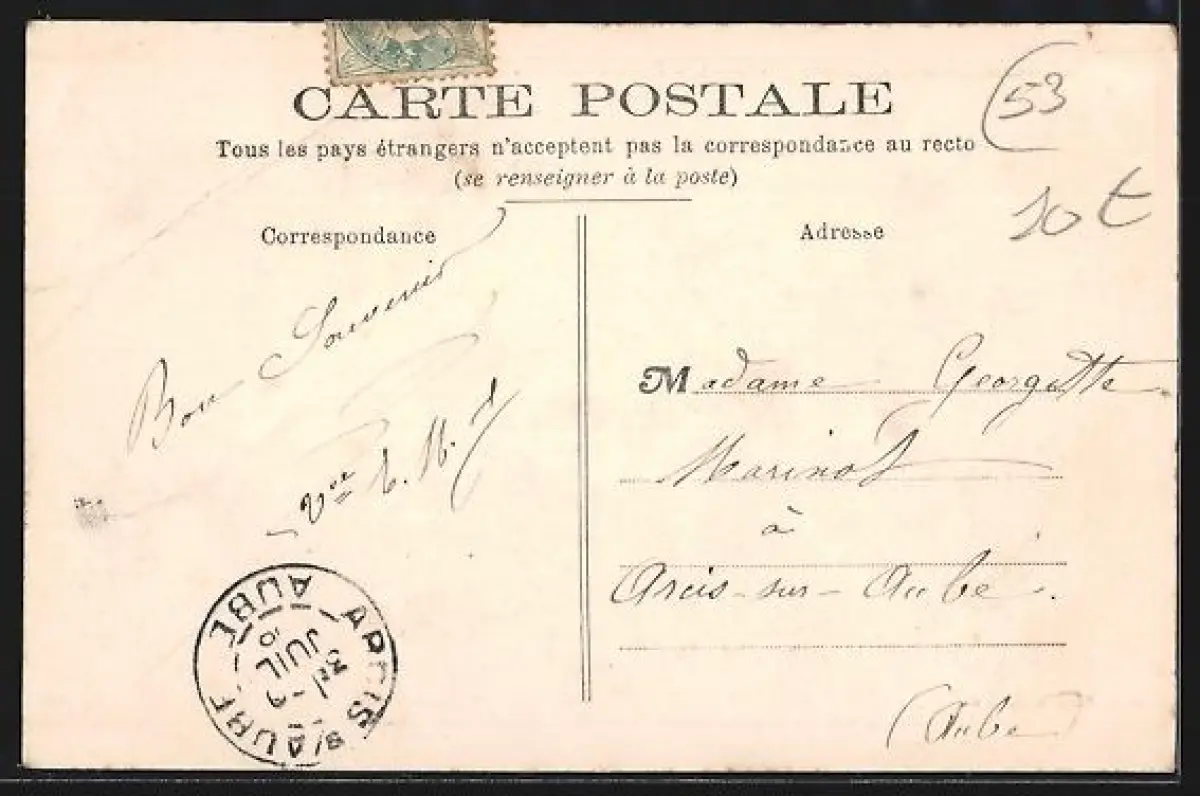 CARTE POSTALE
53
Tous les pays étrangers n'acceptent pas la correspondance au recto
(se renseigner à la poste)
10 €
Correspondance
Bon Souvenir
Vve
Adresse
Madame Georgette
Marinot
à
Arcis-sur-Aube.
(Aube
ARCIS S/AUBE
AUBE
JUIL